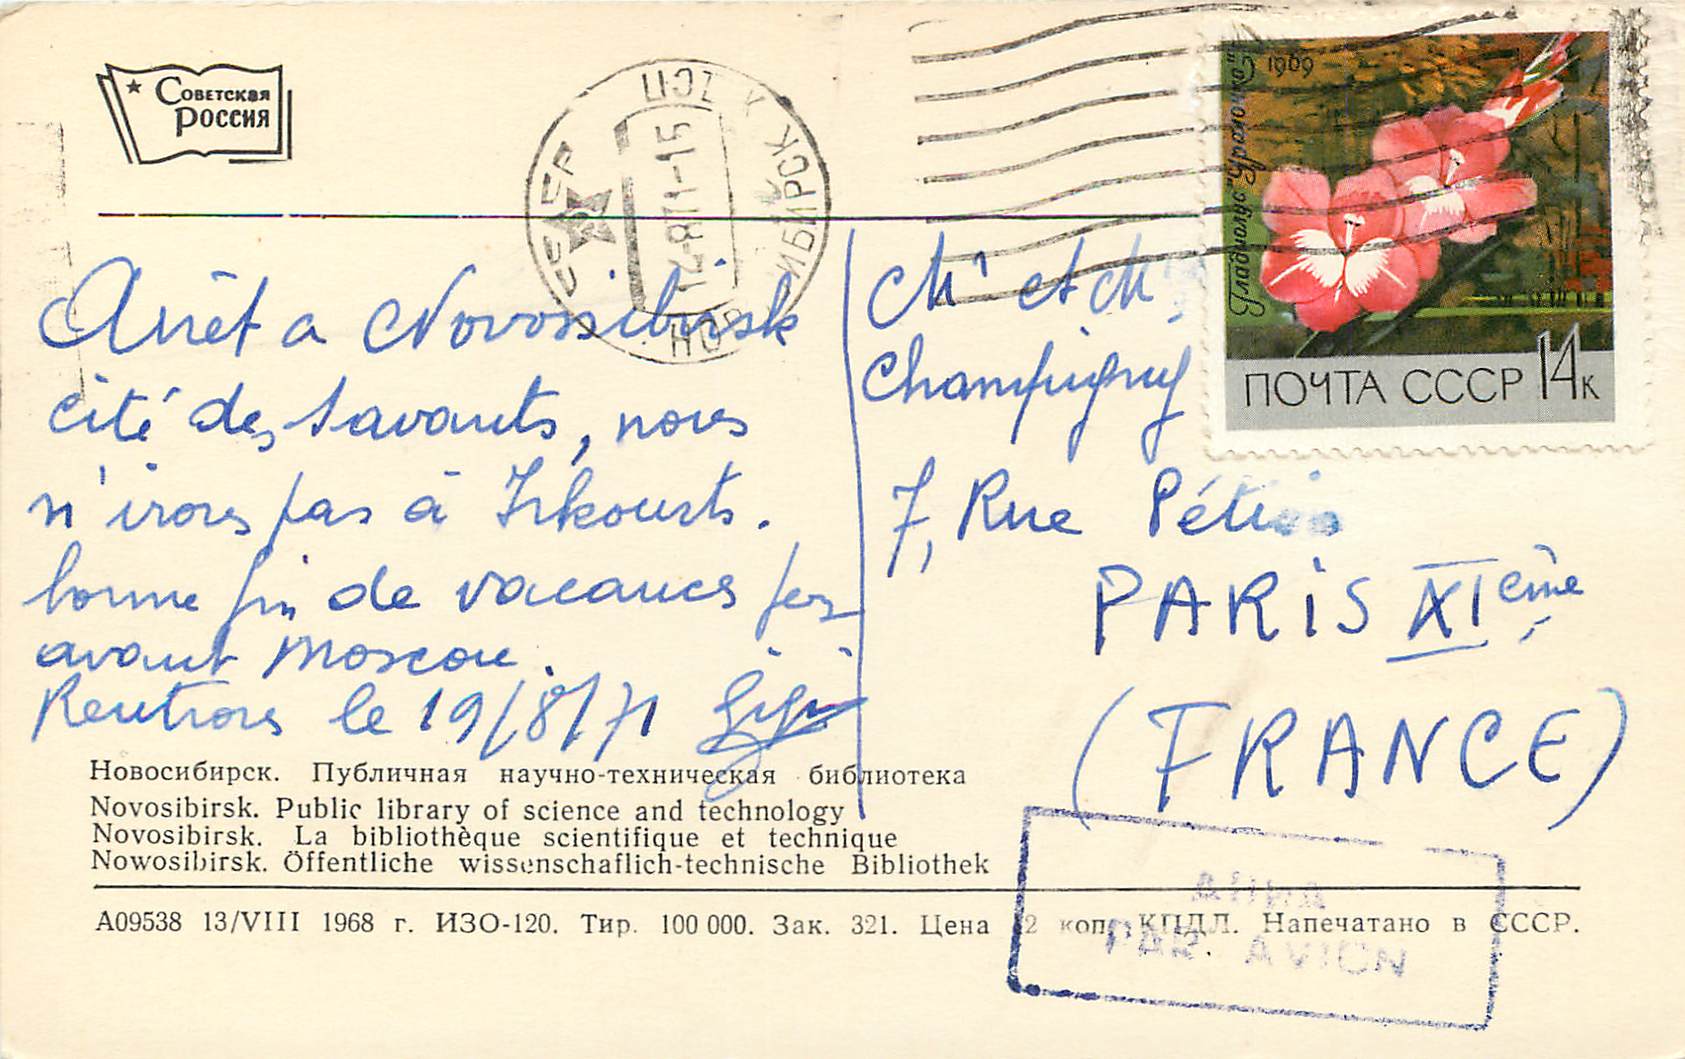 Советская
Россия
СССР
НОВОСИБИРСК
12-871-15
1969
Гладиолус "Уралочка"
ПОЧТА СССР 14к
Arrêt a Novossibirsk
cité des savants, nous
n'irons pas à Irkoursts.
bonne fin de vacances
avant Moscou.
Rentrons le 19/8/71 Gigi
Mr et M
Champigny
7, Rue Pétion
PARIS XIème
(FRANCE)
Новосибирск. Публичная научно-техническая библиотека
Novosibirsk. Public library of science and technology
Novosibirsk. La bibliothèque scientifique et technique
Nowosibirsk. Öffentliche wissenschaflich-technische Bibliothek
А09538 13/VIII 1968 г. ИЗО-120. Тир. 100 000. Зак. 321. Цена 2 коп. КПДЛ. Напечатано в СССР.
АВИА
PAR AVION